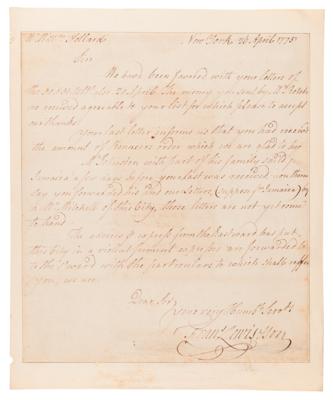 Mr. Willm. Pollard
New York 26 April 1775
Sir
We have been favored with your letters of
the 20 April. The money you sent by Mr.
we received agreeable to your list for which please to accept
our thanks.
Your last letter informs us that you had received
the amount of order which we are glad to hear
Mr. Johnston with part of his family sailed for
Jamaica a few days before your last was received, you then
say you forwarded his and our letters (suppose for Jamaica) by
a Mr. Mitchell of this City, those letters are not yet come
to hand
The advices & express from the Eastward has put
this City in a violent ferment expresses are forwarded
to the with the particulars to which shall refer
you, we are
Dear Sir
your very Humb. Servts.
Frans. Lewis & Son